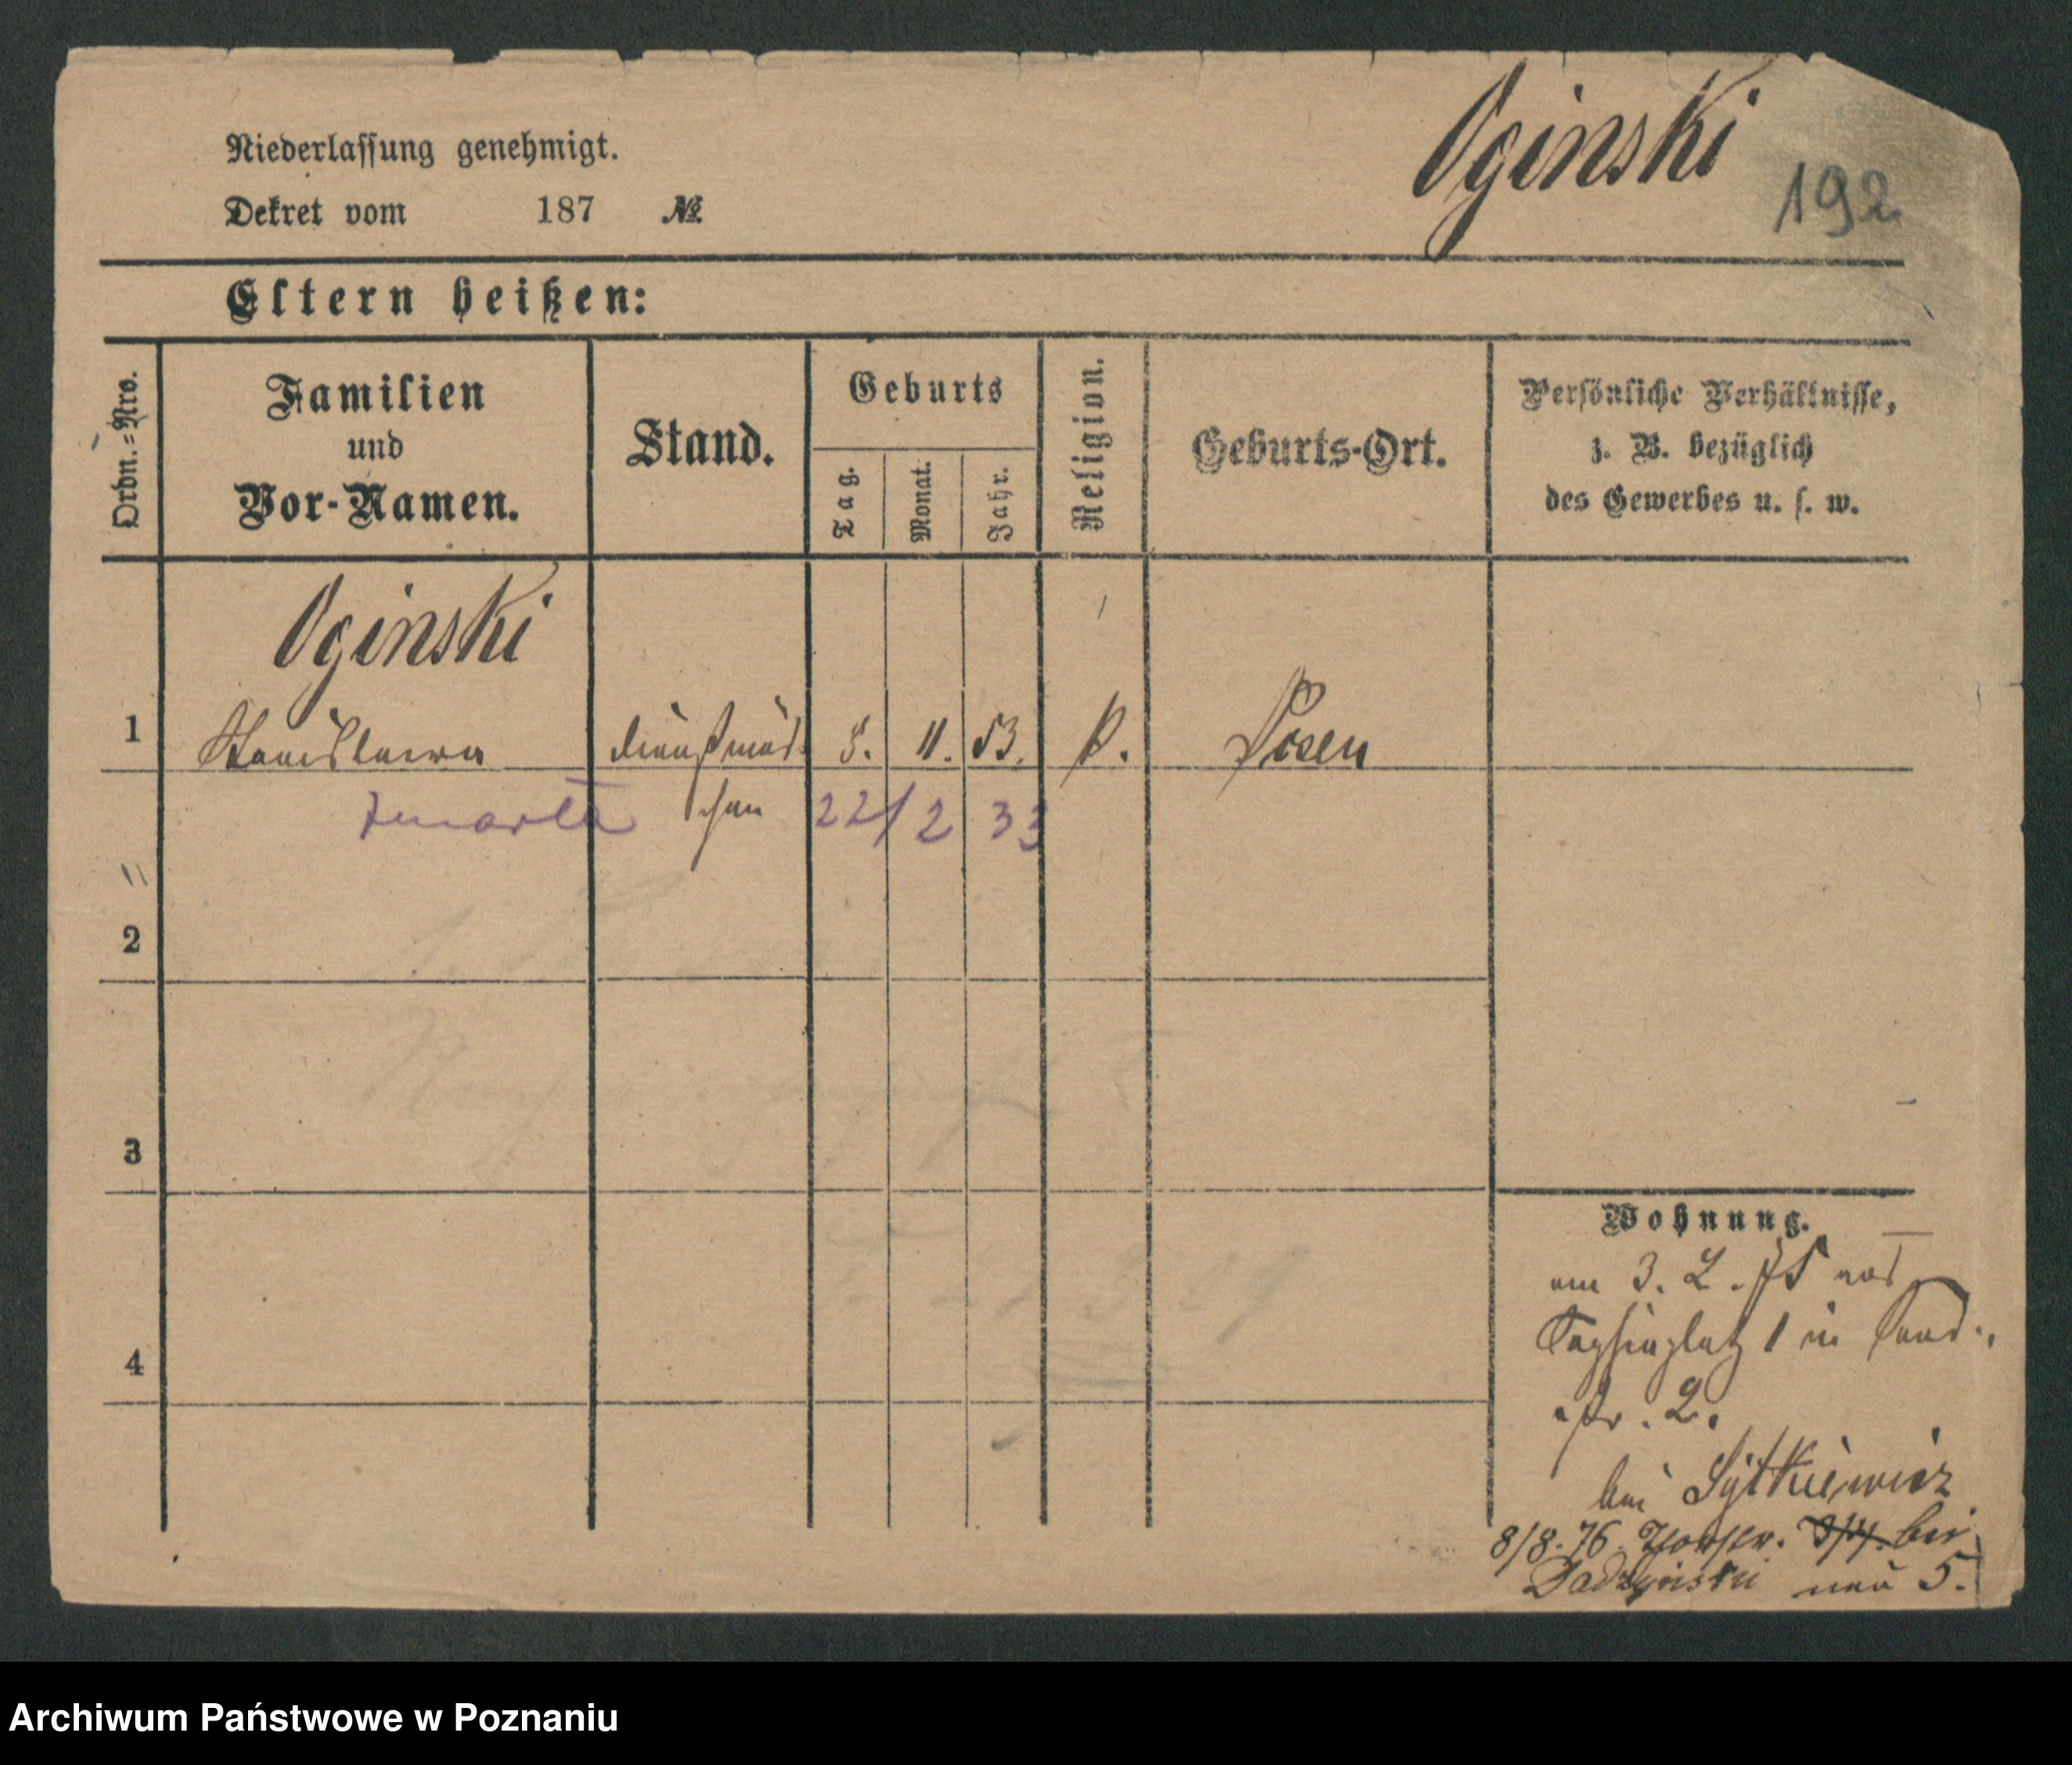 Oginski
192
Niederlassung genehmigt.
Dekret vom 187 №
Eltern heißen:
Ordn.=Nro.
Familien
und
Vor-Namen.
Stand.
Geburts
Tag.
Monat.
Jahr.
Religion.
Geburts-Ort.
Persönliche Verhältnisse,
z. B. bezüglich
des Gewerbes u. s. w.
Oginski
1 Stanislawa Dienstmäd= 8. 11. 53. k. Posen
chen
zmarła 22/2 33
2
3
4
Wohnung.
am 3. 2. 75 von
Sapiehaplatz 1 in Sand-
str. 2.
bei Sytkiewicz
8/8. 76. bei
neu 5.
Archiwum Państwowe w Poznaniu